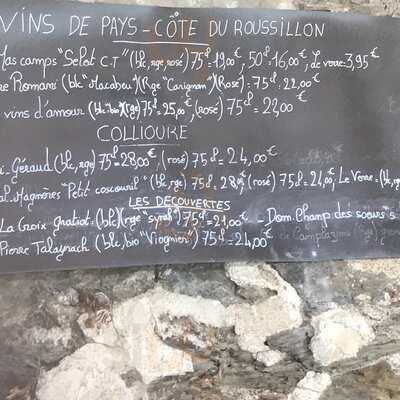 VINS DE PAYS - CÔTE DU ROUSSILLON
Mas camps "Selot C.T" (blc, rge, rosé) 75cl = 19,00€, 50cl = 16,00€, Le verre: 3,95€
Romans (blc "Macabeu") (Rge "Carignan") (Rosé): 75cl = 22,00€
vins d'amour (blc "bio") (rge) 75cl = 25,00€, (rosé) 75cl = 22,00€
COLLIOURE
Géraud (blc, rge) 75cl = 28,00€, (rosé) 75cl = 24,00€
Magnères "Petit couscouril" (blc, rge) 75cl = 28,00€, (rosé) 75cl = 24,00€, Le Verre = (blc, rg
LES DÉCOUVERTES
La Croix Gratiot (blc) (rge "syrah") 75cl = 21,00€ - Dom. Champ des soeurs
Pierre Talayrach (blc, bio "Viognier") 75cl = 24,00€